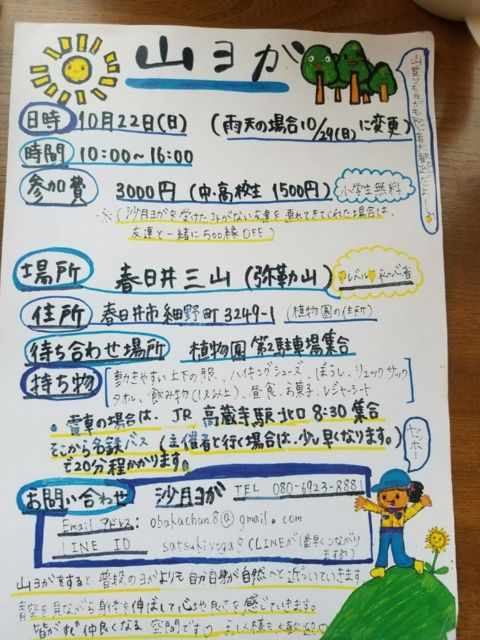 山ヨガ
山登りもヨガも初心者大歓迎だよー!
日時 10月22日(日) (雨天の場合10/29(日)に変更)
時間 10:00~16:00
参加費 3000円 (中・高校生 1500円) 小学生無料
※(沙月ヨガを受けたコトがない友達を連れてきてくれた場合は、
友達と一緒に500縁OFF)
場所 春日井三山 (弥勒山) レベル 初心者
住所 春日井市細野町3249-1 (植物園の住所)
待ち合わせ場所 植物園 第2駐車場集合
持ち物 動きやすい上下の服、ハイキングシューズ、ぼうし、リュックサック
タオル、飲み物(1L以上)、昼食、お菓子、レジャーシート
電車の場合は、JR 高蔵寺駅北口 8:30 集合
そこから名鉄バス (主催者と行く場合は、少し早くなります。)
で20分程かかります。
ヤッホー
お問い合わせ 沙月ヨガ TEL 080-6923-8881
Email アドレス: obakachan8@gmail.com
LINE ID satsukiyoga8 (LINEが1番早くつながり
ますョ)
山ヨガをすると普段のヨガよりも自分自身が自然へと近づいていきます
青空を見ながら身体を伸ばして心地良さを感じていきます。
皆がすぐ仲良くなる空間です♡